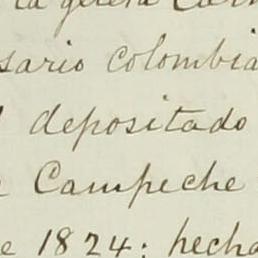 la goleta
sario colombia
depositado
Campeche
e 1824; hecha